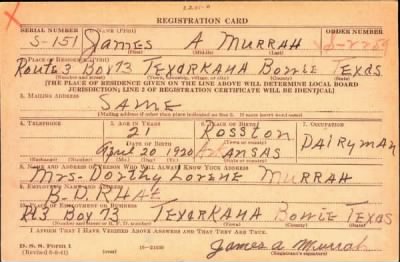 REGISTRATION CARD
SERIAL NUMBER 1. NAME (Print) ORDER NUMBER
S-151 James A MURRAH
(First) (Middle) (Last)
2. PLACE OF RESIDENCE (Print)
Route 3 Box 73 TexarKana Bowie Texas
(Number and street) (Town, township, village, or city) (County) (State)
[THE PLACE OF RESIDENCE GIVEN ON THE LINE ABOVE WILL DETERMINE LOCAL BOARD
JURISDICTION; LINE 2 OF REGISTRATION CERTIFICATE WILL BE IDENTICAL]
3. MAILING ADDRESS
SAME
[Mailing address if other than place indicated on line 2. If same insert word same]
4. TELEPHONE 5. AGE IN YEARS 6. PLACE OF BIRTH 7. OCCUPATION
21 Rosston DAiryMAN
DATE OF BIRTH
April 20 1920 ArkANSAS
(Exchange) (Number) (Mo.) (Day) (Yr.) (State or country)
8. NAME AND ADDRESS OF PERSON WHO WILL ALWAYS KNOW YOUR ADDRESS
Mrs- Lorene MURRAH
9. EMPLOYER'S NAME AND ADDRESS
10. PLACE OF EMPLOYMENT OR BUSINESS
Rt3 Box 73 TexarKana Bowie Texas
(Number and street or R. F. D. number) (Town) (County) (State)
I AFFIRM THAT I HAVE VERIFIED ABOVE ANSWERS AND THAT THEY ARE TRUE.
D. S. S. Form 1
(Revised 6-9-41) (over) 16-21630
James A Murrah
(Registrant's signature)